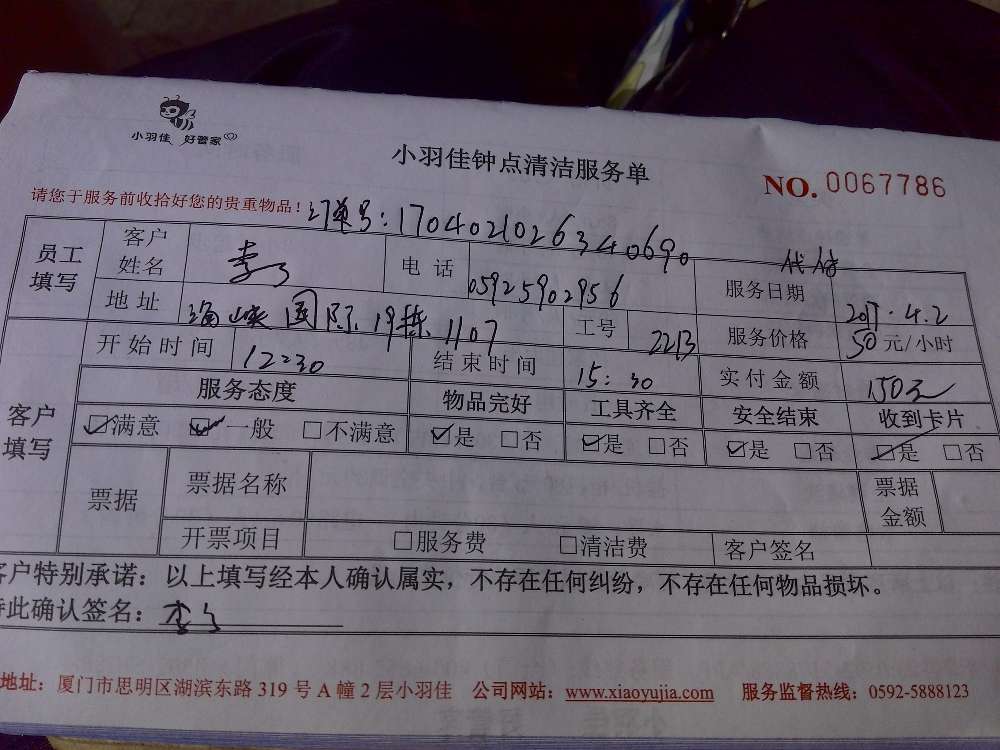 小羽佳 好管家
小羽佳钟点清洁服务单
NO. 0067786
请您于服务前收拾好您的贵重物品！订单号：1704021026340690
员工填写 客户姓名 李 电话 05925902956 服务日期 2017.4.2
地址 海峡国际19栋1107 工号 2213 服务价格 50元/小时
客户填写 开始时间 12:30 结束时间 15:30 实付金额 150元
服务态度 物品完好 工具齐全 安全结束 收到卡片
☑满意 ☑一般 □不满意 ☑是 □否 ☑是 □否 ☑是 □否 ☑是 □否
票据 票据名称 票据金额
开票项目 □服务费 □清洁费 客户签名
客户特别承诺：以上填写经本人确认属实，不存在任何纠纷，不存在任何物品损坏。
特此确认签名：李
地址：厦门市思明区湖滨东路 319 号 A 幢 2 层小羽佳 公司网站：www.xiaoyujia.com 服务监督热线：0592-5888123